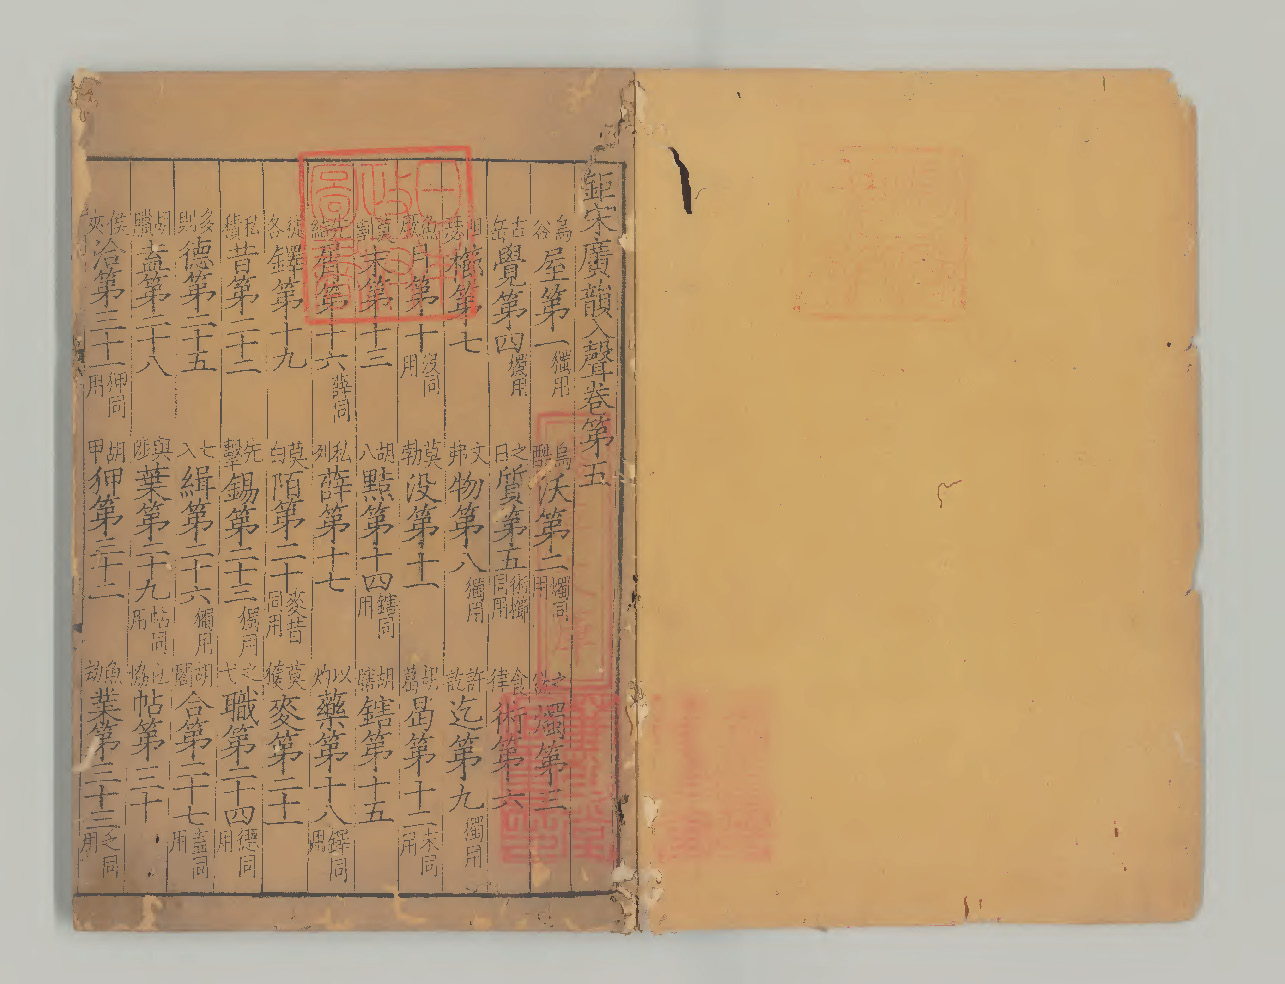 鉅宋廣韻入聲卷第五
烏谷屋第一獨用 烏酷沃第二燭同用 之欲燭第三
古岳覺第四獨用 之日質第五術櫛同用 食律術第六
阻瑟櫛第七 文弗物第八獨用 許訖迄第九獨用
魚厥月第十沒同用 莫勃没第十一 胡葛曷第十二末同用
莫割末第十三 胡八黠第十四鎋同用 胡瞎鎋第十五
先結屑第十六薛同 私列薛第十七 以灼藥第十八鐸同用
徒各鐸第十九 莫白陌第二十麥昔同用 莫獲麥第二十一
私積昔第二十二 先擊錫第二十三獨用 之弋職第二十四德同用
多則德第二十五 七入緝第二十六獨用 胡閤合第二十七盍同用
胡臘盍第二十八 與涉葉第二十九帖同用 他協帖第三十
侯夾洽第三十一狎同用 胡甲狎第三十二 魚劫業第三十三乏同用